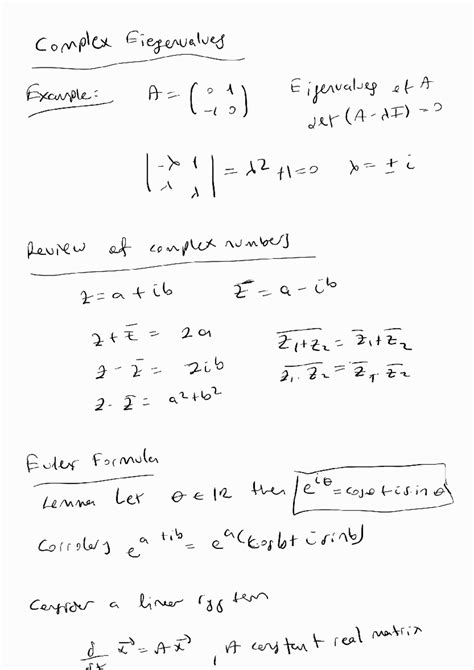 Complex Eigenvalues
Example: A = ( 0 1 ; -1 0 ) Eigenvalues of A
det(A - λI) = 0
| -λ 1 ; λ | = λ² + 1 = 0 λ = ± i
Review of complex numbers
z = a + ib z̄ = a - ib
z + z̄ = 2a \overline{z₁+z₂} = z̄₁ + z̄₂
z - z̄ = 2ib \overline{z₁·z₂} = z̄₁ · z̄₂
z · z̄ = a² + b²
Euler Formula
Lemma Let θ ∈ ℝ then e^{iθ} = cosθ + i sinθ
Corrolary e^{a+ib} = e^a (cos b + i sin b)
Consider a linear system
d/dt x⃗ = A x⃗ , A constant real matrix